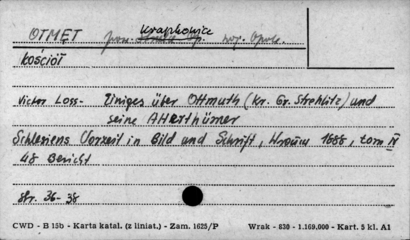 OTMĘT pow. Krapkowice woj. Opole
kościół
Victor Loss- Einiges über Ottmuth (Kr. Gr. Strehlitz) und
seine Alterthümer
Schlesiens Vorzeit in Bild und Schrift, Wrocław 1888, tom IV
48 Bericht
str. 36-38
CWD - B 15b - Karta katal. (z liniat.) - Zam. 1625/P Wrak - 830 - 1.169.000 - Kart. 5 kl. A1